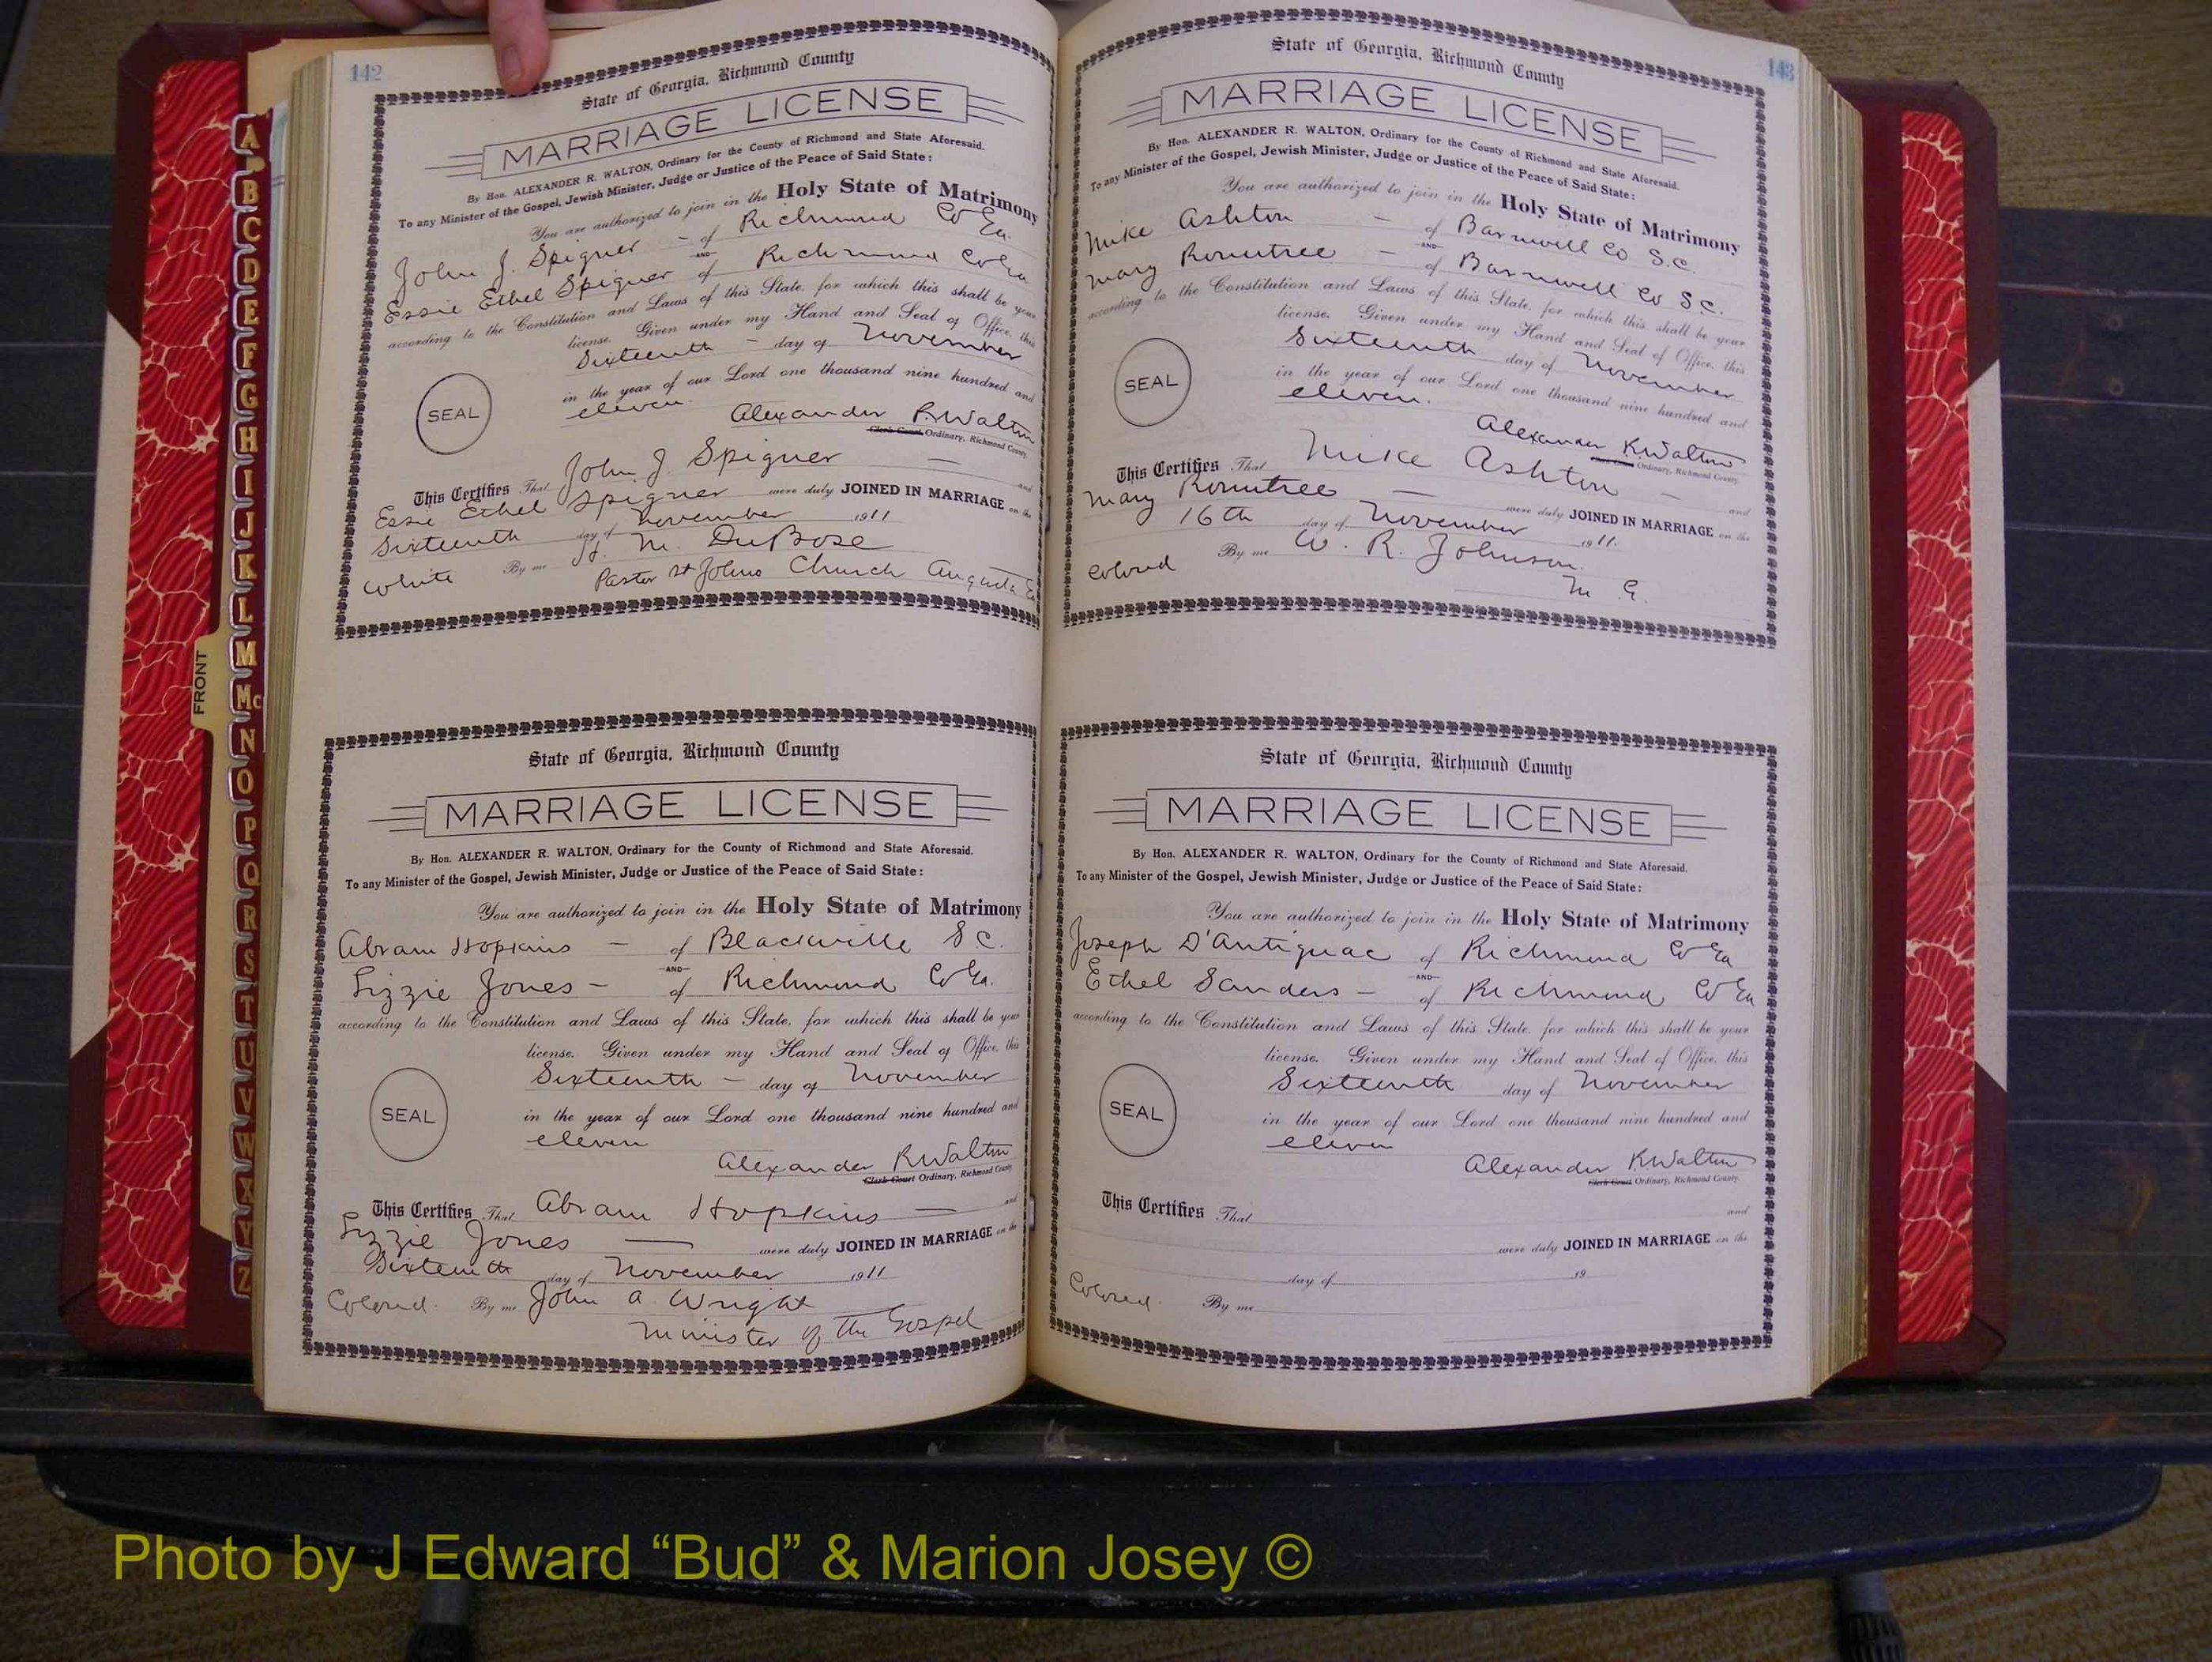 142
State of Georgia, Richmond County
MARRIAGE LICENSE
By Hon. ALEXANDER R. WALTON, Ordinary for the County of Richmond and State Aforesaid.
To any Minister of the Gospel, Jewish Minister, Judge or Justice of the Peace of Said State:
You are authorized to join in the Holy State of Matrimony
John J. Spigner - of Richmond Co Ga.
AND
Essie Ethel Spigner of Richmond Co Ga
according to the Constitution and Laws of this State, for which this shall be your
license. Given under my Hand and Seal of Office, this
Sixteenth - day of November
in the year of our Lord one thousand nine hundred and
eleven.
SEAL
Alexander R. Walton
Clerk Court Ordinary, Richmond County.
This Certifies That John J. Spigner - and
Essie Ethel Spigner were duly JOINED IN MARRIAGE on the
Sixteenth day of November 1911
White By me H. M. DuBose
Pastor St Johns Church Augusta Ga
State of Georgia, Richmond County
MARRIAGE LICENSE
By Hon. ALEXANDER R. WALTON, Ordinary for the County of Richmond and State Aforesaid.
To any Minister of the Gospel, Jewish Minister, Judge or Justice of the Peace of Said State:
You are authorized to join in the Holy State of Matrimony
Abram Hopkins - of Blackville S.C.
AND
Lizzie Jones - of Richmond Co Ga.
according to the Constitution and Laws of this State, for which this shall be your
license. Given under my Hand and Seal of Office, this
Sixteenth - day of November
in the year of our Lord one thousand nine hundred and
eleven
SEAL
Alexander R Walton
Clerk Court Ordinary, Richmond County
This Certifies That Abram Hopkins - and
Lizzie Jones - were duly JOINED IN MARRIAGE on the
Sixteenth day of November 1911
Colored. By me John A Wright
Minister of the Gospel
143
State of Georgia, Richmond County
MARRIAGE LICENSE
By Hon. ALEXANDER R. WALTON, Ordinary for the County of Richmond and State Aforesaid.
To any Minister of the Gospel, Jewish Minister, Judge or Justice of the Peace of Said State:
You are authorized to join in the Holy State of Matrimony
Mike Ashton - of Barnwell Co S.C.
AND
Mary Rountree - of Barnwell Co S.C.
according to the Constitution and Laws of this State, for which this shall be your
license. Given under my Hand and Seal of Office, this
Sixteenth day of November
in the year of our Lord one thousand nine hundred and
eleven.
SEAL
Alexander R Walton
Clerk Court Ordinary, Richmond County
This Certifies That Mike Ashton - and
Mary Rountree - were duly JOINED IN MARRIAGE on the
16th day of November 1911.
Colored By me W. R. Johnson.
M G.
State of Georgia, Richmond County
MARRIAGE LICENSE
By Hon. ALEXANDER R. WALTON, Ordinary for the County of Richmond and State Aforesaid.
To any Minister of the Gospel, Jewish Minister, Judge or Justice of the Peace of Said State:
You are authorized to join in the Holy State of Matrimony
Joseph D'Antignac of Richmond Co Ga
AND
Ethel Sanders - of Richmond Co Ga
according to the Constitution and Laws of this State, for which this shall be your
license. Given under my Hand and Seal of Office, this
Sixteenth day of November
in the year of our Lord one thousand nine hundred and
eleven
SEAL
Alexander R Walton
Clerk Court Ordinary, Richmond County.
This Certifies That and
were duly JOINED IN MARRIAGE on the
day of 19
Colored. By me
A
B
C
D
E
F
G
H
I
J
K
L
M
Mc
N
O
P
Q
R
S
T
U
V
W
X
Y
Z
FRONT
Photo by J Edward “Bud” & Marion Josey ©